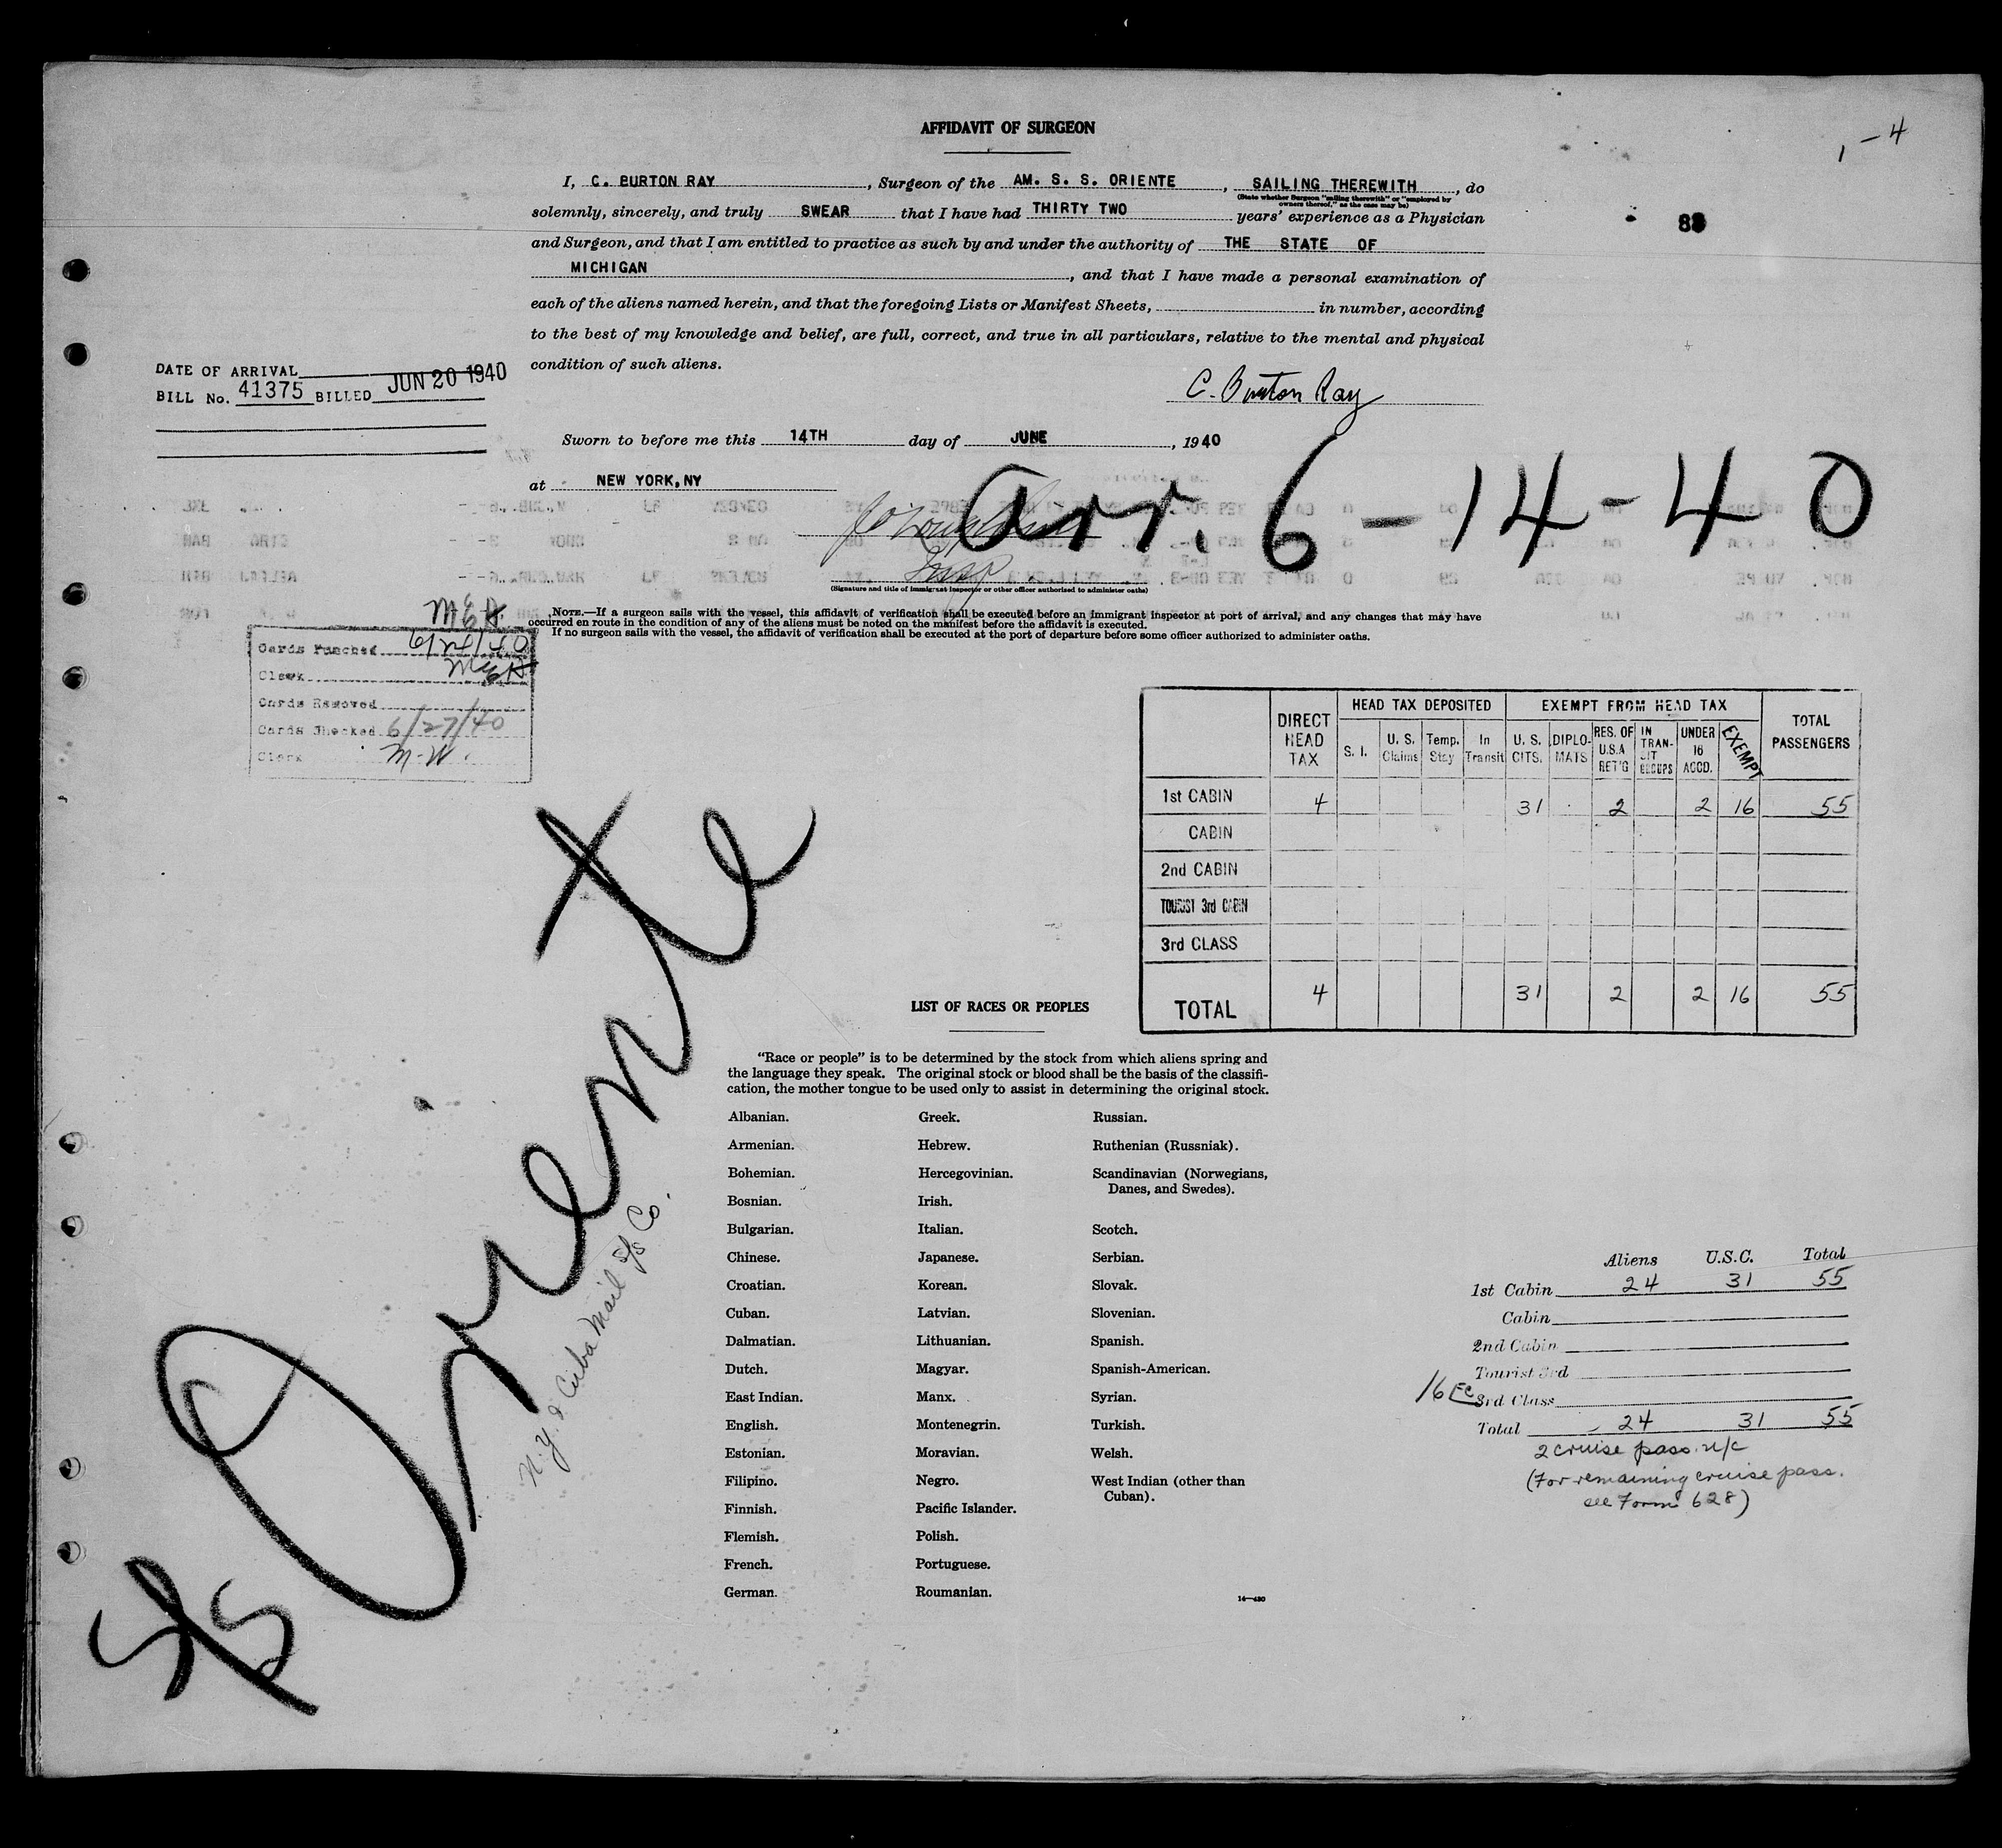 AFFIDAVIT OF SURGEON
1-4
I, C. BURTON RAY, Surgeon of the AM. S. S. ORIENTE, SAILING THEREWITH, do
(State whether Surgeon "sailing therewith" or "employed by owners thereof," as the case may be)
solemnly, sincerely, and truly SWEAR that I have had THIRTY TWO years' experience as a Physician
and Surgeon, and that I am entitled to practice as such by and under the authority of THE STATE OF
MICHIGAN, and that I have made a personal examination of
each of the aliens named herein, and that the foregoing Lists or Manifest Sheets, in number, according
to the best of my knowledge and belief, are full, correct, and true in all particulars, relative to the mental and physical
condition of such aliens.
DATE OF ARRIVAL
BILL No. 41375 BILLED JUN 20 1940
C. Burton Ray
Sworn to before me this 14TH day of JUNE, 1940
at NEW YORK, NY
arr. 6-14-40
Insp
(Signature and title of immigrant inspector or other officer authorized to administer oaths)
NOTE.—If a surgeon sails with the vessel, this affidavit of verification shall be executed before an immigrant inspector at port of arrival, and any changes that may have
occurred en route in the condition of any of the aliens must be noted on the manifest before the affidavit is executed.
If no surgeon sails with the vessel, the affidavit of verification shall be executed at the port of departure before some officer authorized to administer oaths.
Cards Punched
Clerk
Cards Removed
Cards Checked 6/27/40
Clerk M.W.
DIRECT HEAD TAX
HEAD TAX DEPOSITED
EXEMPT FROM HEAD TAX
TOTAL PASSENGERS
S. I. U. S. Claims Temp. Stay In Transit U. S. CITS. DIPLOMATS RES. OF U.S.A RET'G IN TRANSIT GROUPS UNDER 16 ACCD. EXEMPT
1st CABIN 4 31 2 2 16 55
CABIN
2nd CABIN
TOURIST 3rd CABIN
3rd CLASS
TOTAL 4 31 2 2 16 55
S/S Oriente
N.Y. & Cuba Mail S/S Co.
LIST OF RACES OR PEOPLES
"Race or people" is to be determined by the stock from which aliens spring and
the language they speak. The original stock or blood shall be the basis of the classifi-
cation, the mother tongue to be used only to assist in determining the original stock.
Albanian.
Armenian.
Bohemian.
Bosnian.
Bulgarian.
Chinese.
Croatian.
Cuban.
Dalmatian.
Dutch.
East Indian.
English.
Estonian.
Filipino.
Finnish.
Flemish.
French.
German.
Greek.
Hebrew.
Hercegovinian.
Irish.
Italian.
Japanese.
Korean.
Latvian.
Lithuanian.
Magyar.
Manx.
Montenegrin.
Moravian.
Negro.
Pacific Islander.
Polish.
Portuguese.
Roumanian.
Russian.
Ruthenian (Russniak).
Scandinavian (Norwegians,
Danes, and Swedes).
Scotch.
Serbian.
Slovak.
Slovenian.
Spanish.
Spanish-American.
Syrian.
Turkish.
Welsh.
West Indian (other than
Cuban).
Aliens U.S.C. Total
1st Cabin 24 31 55
Cabin
2nd Cabin
Tourist 3rd
3rd Class
Total 24 31 55
2 cruise pass. n/c
(For remaining cruise pass.
see Form 628)